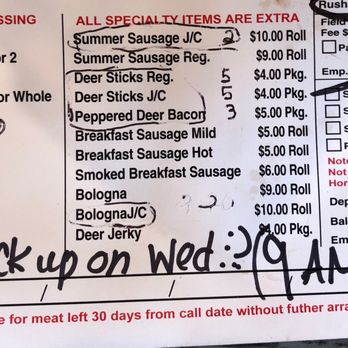 SSING
ALL SPECIALTY ITEMS ARE EXTRA
Rush
Summer Sausage J/C 2 $10.00 Roll
Field
Summer Sausage Reg. $9.00 Roll
Fee $
or 2
Deer Sticks Reg. 5 $4.00 Pkg.
Emp.
or Whole
Deer Sticks J/C 5 $4.00 Pkg.
Peppered Deer Bacon 3 $5.00 Pkg.
Breakfast Sausage Mild $5.00 Roll
Breakfast Sausage Hot $5.00 Roll
Note
Smoked Breakfast Sausage $6.00 Roll
Not
Home
Bologna $9.00 Roll
Dep
BolognaJ/C $10.00 Roll
Bal
Deer Jerky $4.00 Pkg.
Em
ck up on Wed :) (9 AM
/ /
e for meat left 30 days from call date without futher arra